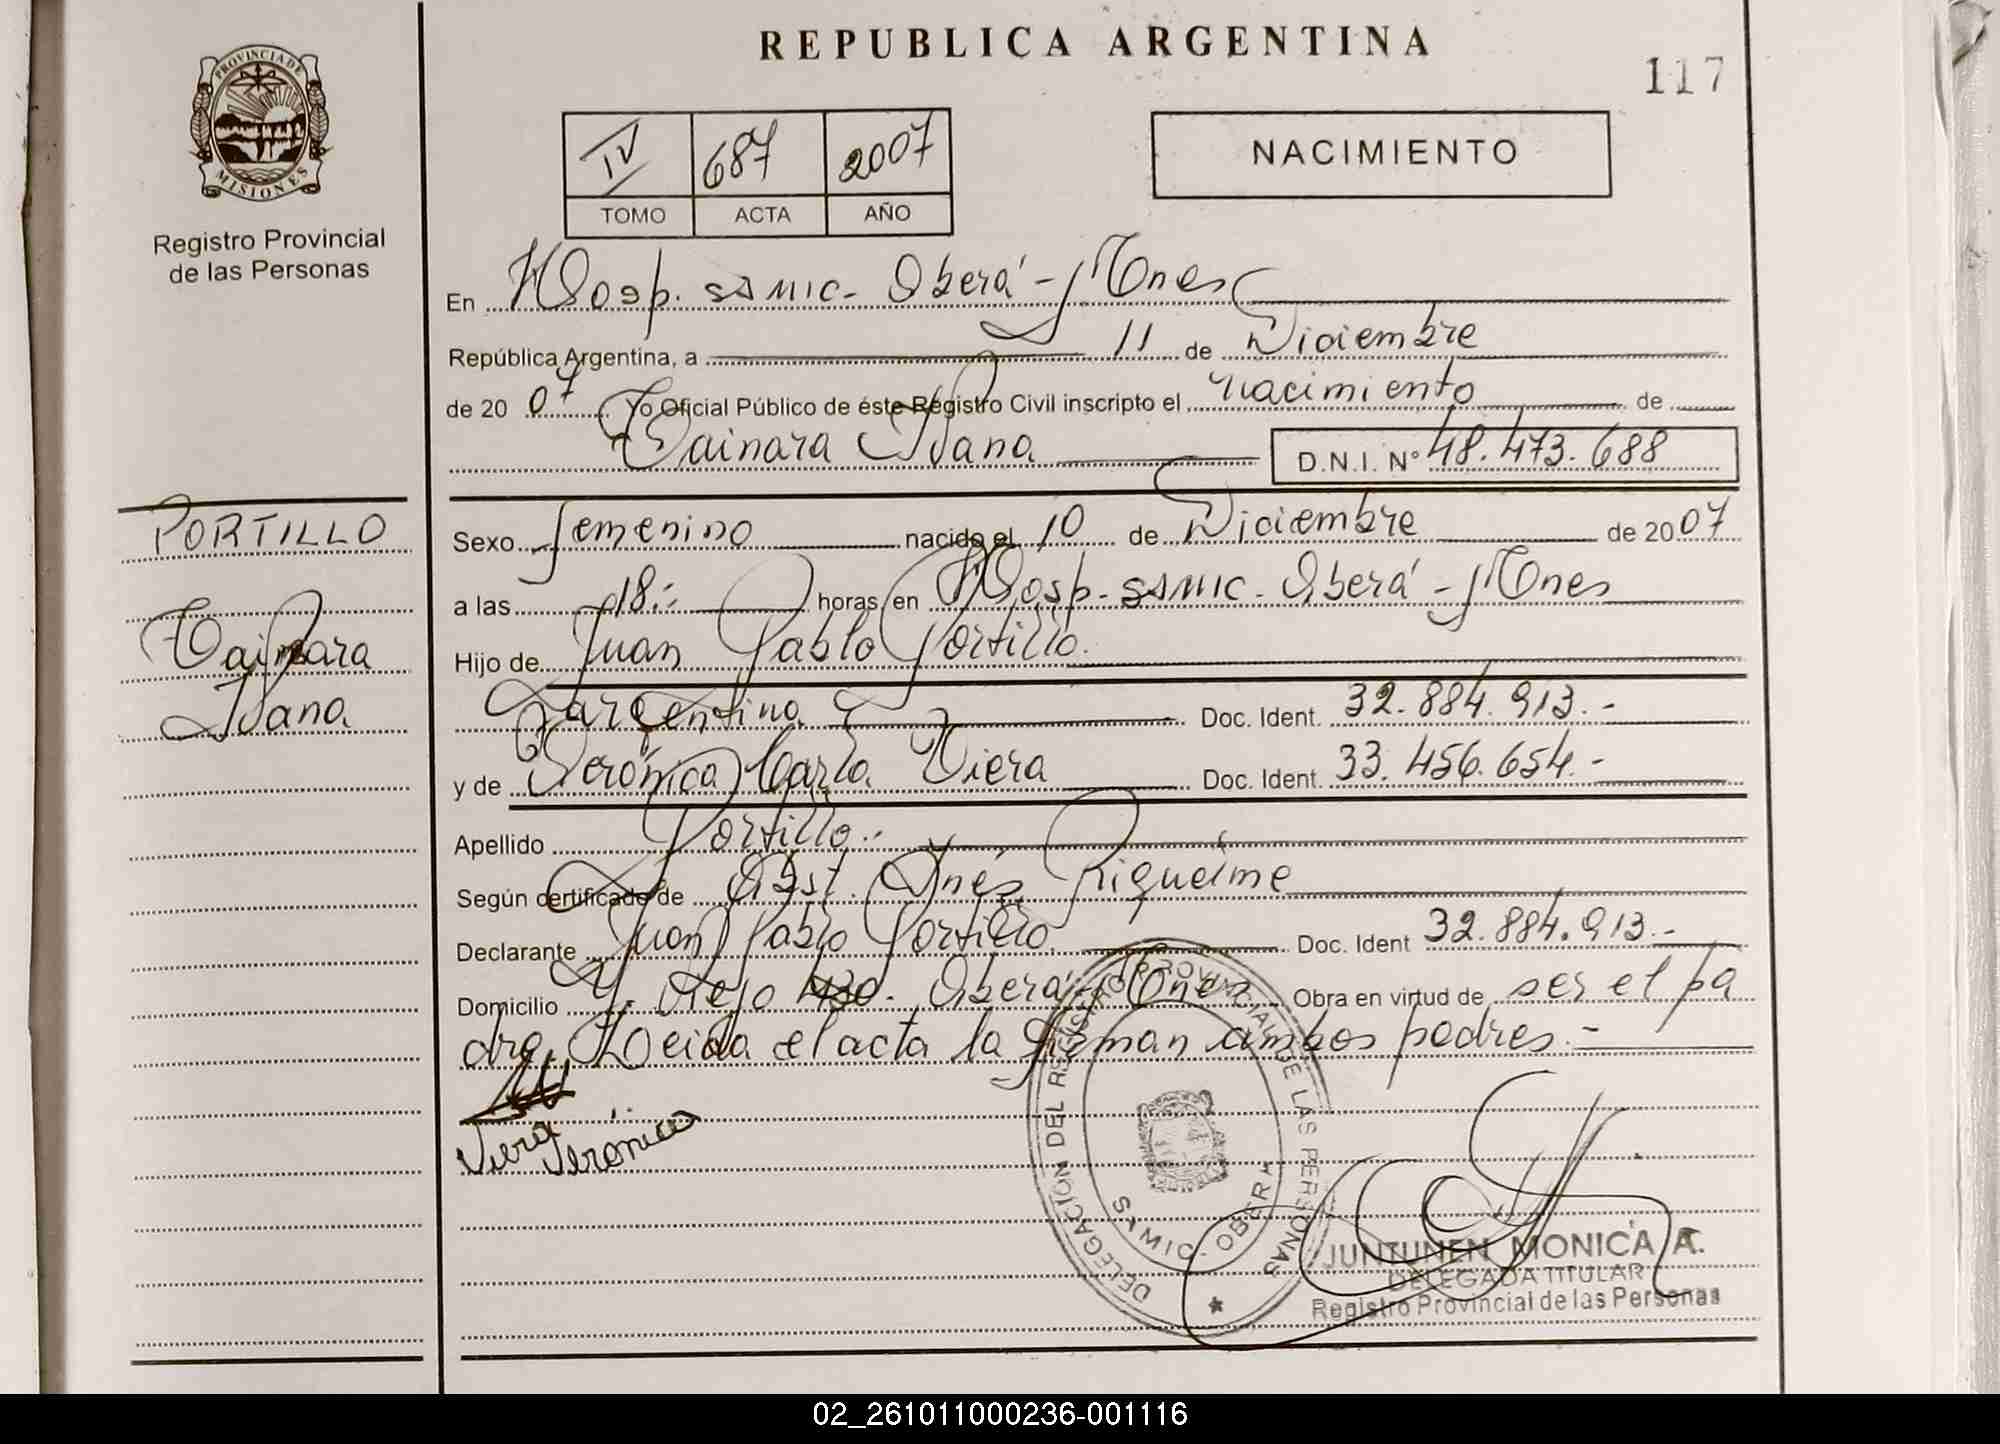 REPUBLICA ARGENTINA
117
PROVINCIA DE
MISIONES
Registro Provincial
de las Personas
IV 687 2007
TOMO ACTA AÑO
NACIMIENTO
En Hosp. SAMIC - Oberá - Mnes
República Argentina, a 11 de Diciembre
de 2007 Yo Oficial Público de éste Registro Civil inscripto el nacimiento de
Tainara Ivana D.N.I. Nº 48.473.688
PORTILLO
Tainara
Ivana
Sexo femenino nacido el 10 de Diciembre de 2007
a las 18:- horas en Hosp. SAMIC - Oberá - Mnes
Hijo de Juan Pablo Portillo.
Argentina Doc. Ident. 32.884.913.-
y de Verónica Carla Viera Doc. Ident. 33.456.654.-
Apellido Portillo.-
Según certificado de Obst. Inés Riqueime
Declarante Juan Pablo Portillo Doc. Ident 32.884.913.-
Domicilio Y. Viejo 430. Oberá - Mnes Obra en virtud de ser el pa
dre. Leida el acta la firman ambos padres.-
Viera Verónica
DELEGACIÓN DEL REGISTRO PROVINCIAL DE LAS PERSONAS
SAMIC - OBERA
JUNTUNEN MONICA A.
DELEGADA TITULAR
Registro Provincial de las Personas
02_261011000236-001116